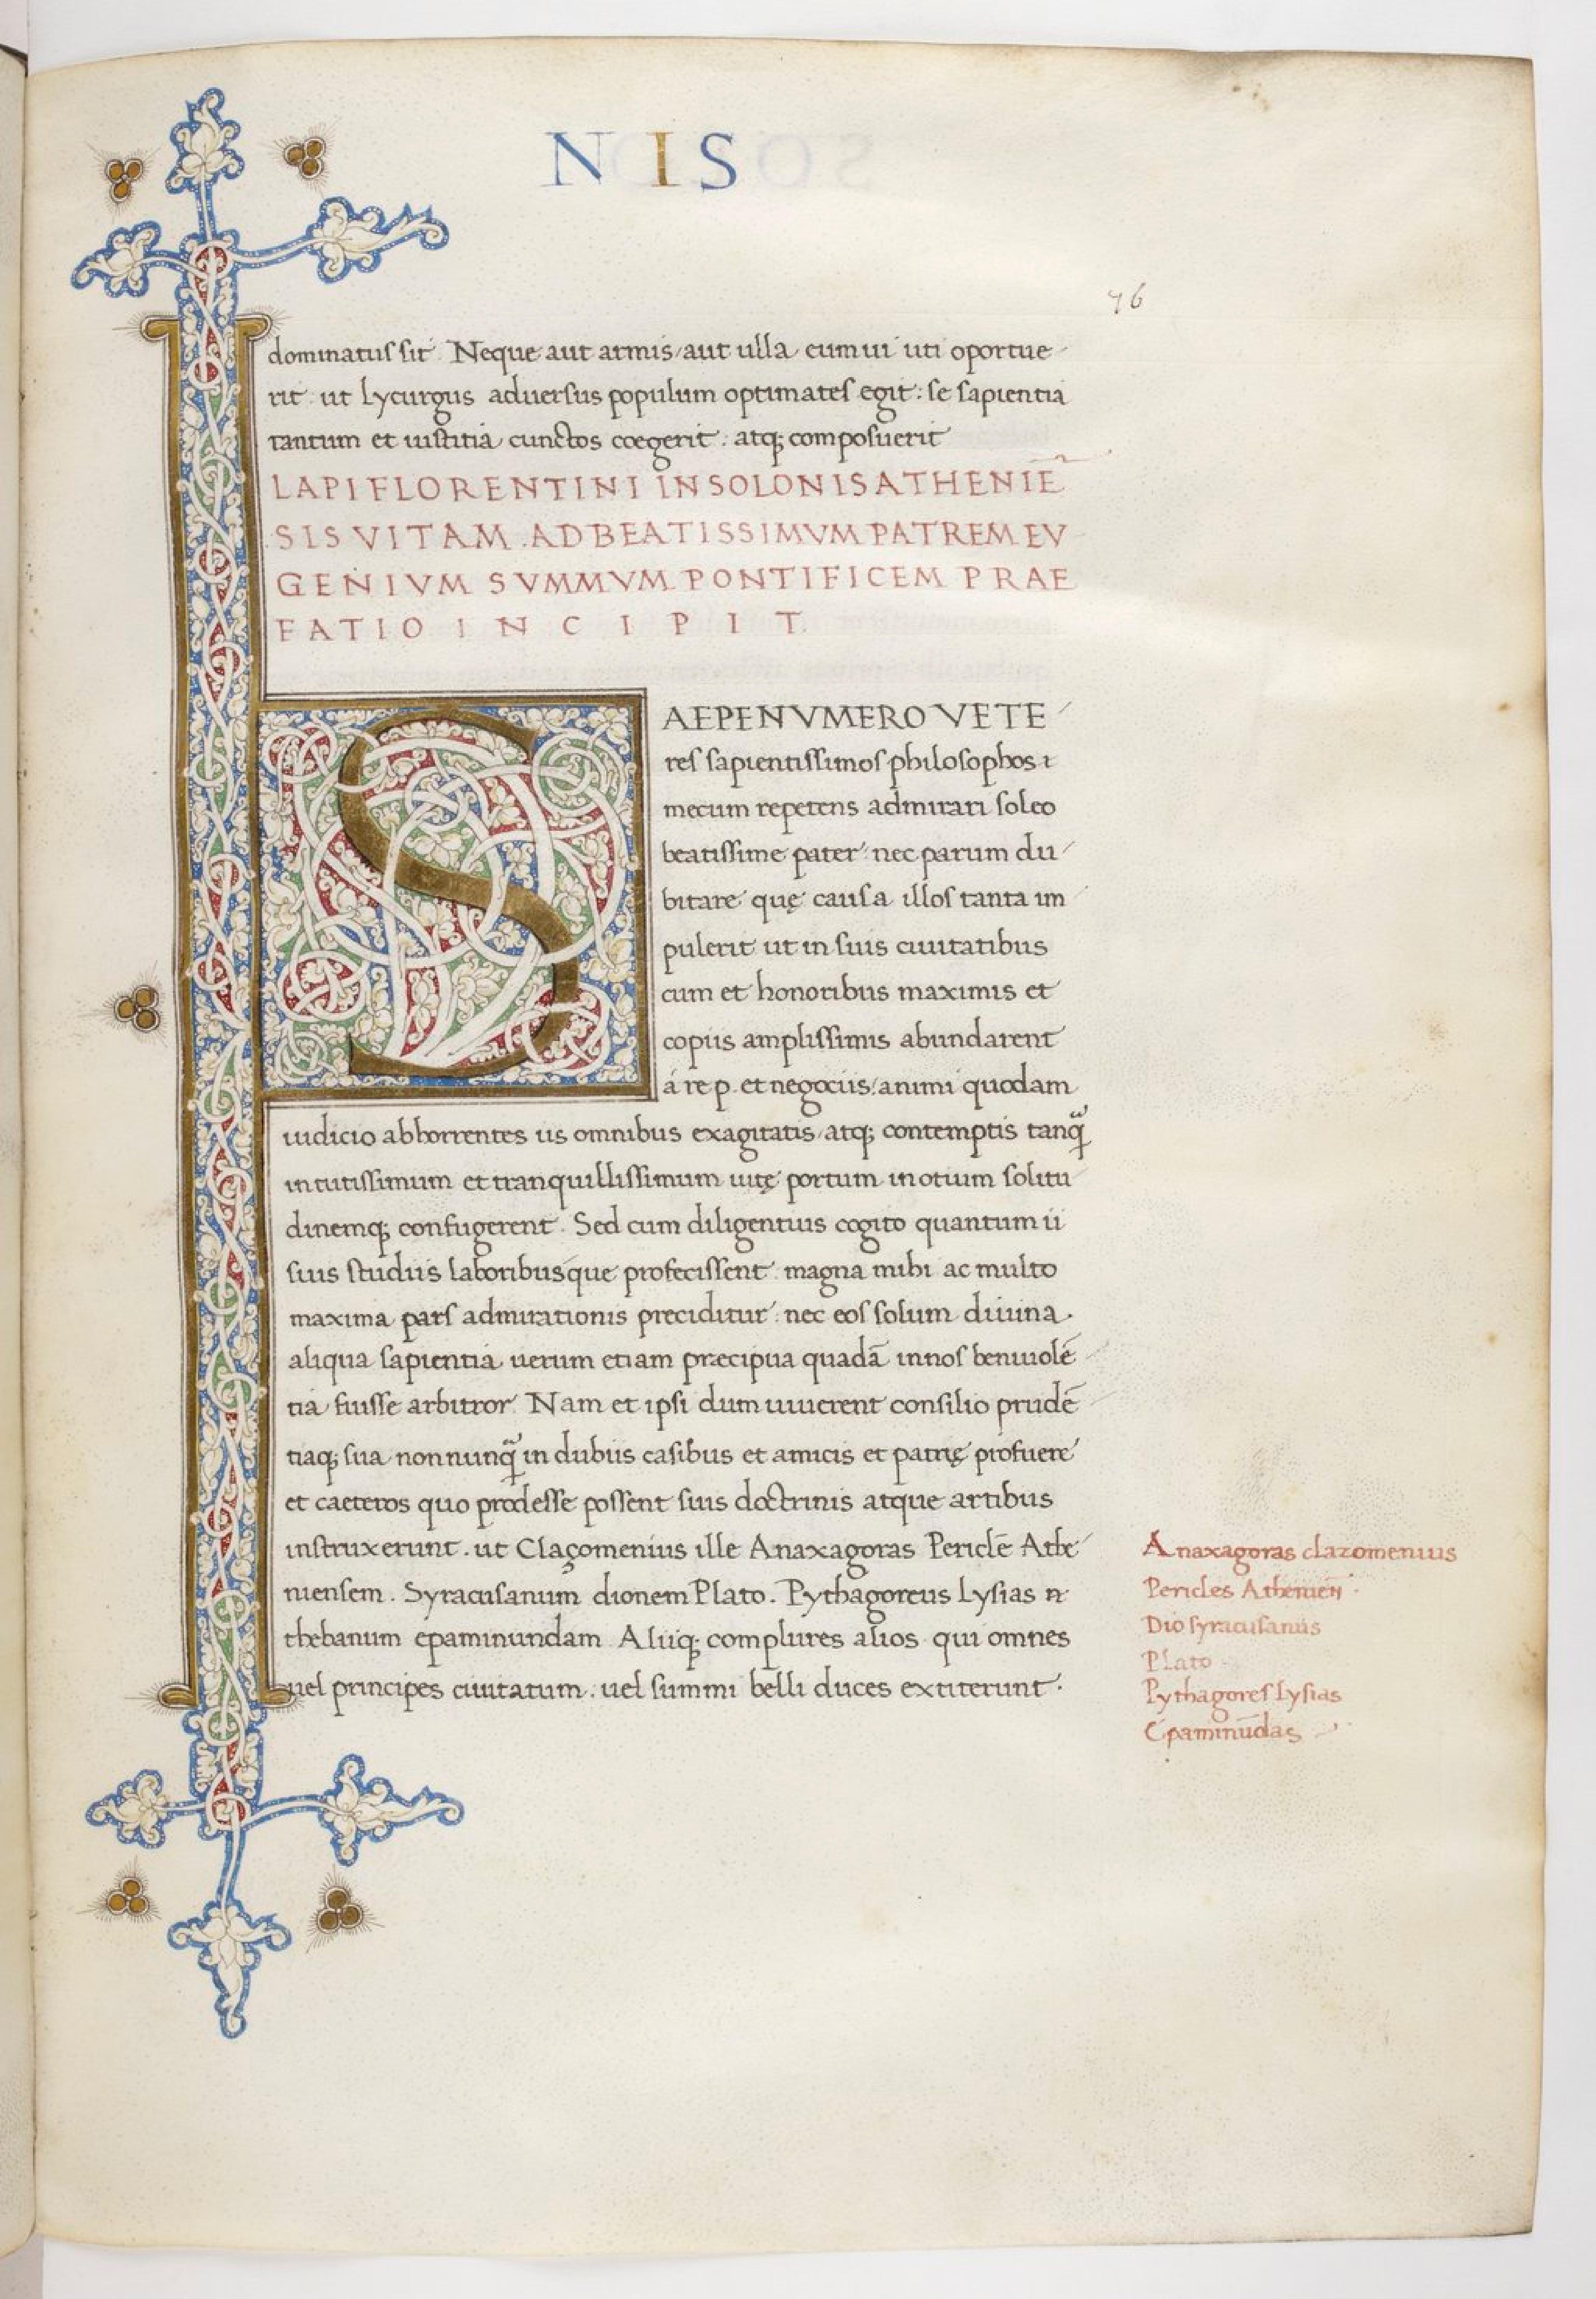 NIS
76
dominatus sit. Neque aut armis/aut ulla eum ui uti oportue-
rit: ut lycurgus aduersus populum optimates egit: se sapientia
tantum et iustitia cunctos coegerit: atq; composuerit
LAPI FLORENTINI IN SOLONIS ATHENIE᷃
SIS VITAM. AD BEATISSIMVM PATREM EV
GENIVM SVMMVM PONTIFICEM PRAE
FATIO INCIPIT.
SAEPENVMERO VETE-
res sapientissimos philosophos
mecum repetens admirari soleo
beatissime pater: nec parum du-
bitare quę causa illos tanta im-
pulerit ut in suis ciuitatibus
cum et honoribus maximis et
copiis amplissimis abundarent
á re p. et negociis/animi quodam
iudicio abhorrentes iis omnibus exagitatis/atq; contemptis tanq̃
in tutissimum et tranquillissimum uitę portum in otium solitu-
dinemq; confugerent. Sed cum diligentius cogito quantum ii
suis studiis laboribusque profecissent: magna mihi ac multo
maxima pars admirationis preciditur: nec eos solum diuina
aliqua sapientia uerum etiam præcipua quadã in nos beniuolẽ-
tia fuisse arbitror. Nam et ipsi dum uiuerent consilio prudẽ-
tiaq; sua nonnunq̃ in dubiis casibus et amicis et patrię profuere
et caeteros quo prodesse possent suis doctrinis atque artibus
instruxerunt. ut Claçomenius ille Anaxagoras Periclẽ Athe-
niensem. Syracusanum dionem Plato. Pythagoreus Lysias
thebanum epaminundam. Aliiq; complures alios qui omnes
uel principes ciuitatum: uel summi belli duces extiterunt.
Anaxagoras clazomenius
Pericles Athenieñ.
Dio syracusanus
Plato
Pythagores Lysias
Epaminũdas